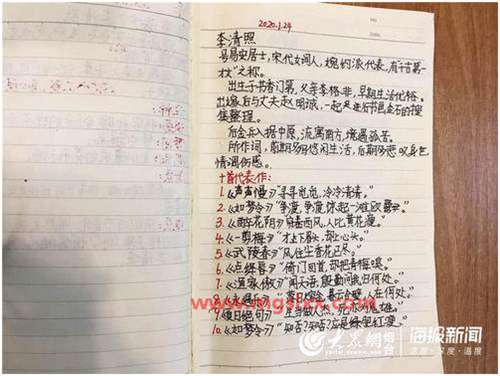 2020.1.24
李清照
号易安居士,宋代女词人,婉约派代表,有"千古第一
才女"之称。
出生于书香门第,父亲李格非,早期生活优裕。
出嫁后与丈夫赵明诚,一起
集整理。
后金兵入据中原,流寓南方,境遇孤苦。
所作词,前期多写悠闲生活,后期多悲叹身世
情调伤感。
十首代表作:
1.《声声慢》"寻寻觅觅,冷冷清清。"
2.《如梦令》"争渡,争渡,惊起一滩欧鹭。"
3.《醉花阴》"西风,人比黄花瘦。"
4.《一剪梅》"才下眉头,却上心头。"
5.《武陵春》"风住尘香花已尽。"
6.《点绛唇》"倚门回首,却把青梅嗅。"
7.《渔家傲》"闻天语,殷勤问我归何处。"
8.《永遇乐》 人在何处。"
9.《夏日绝句》"生当做人杰,死亦为鬼雄。"
10.《如梦令》"知否?知否?应是绿肥红瘦。"
大众网
海报新闻